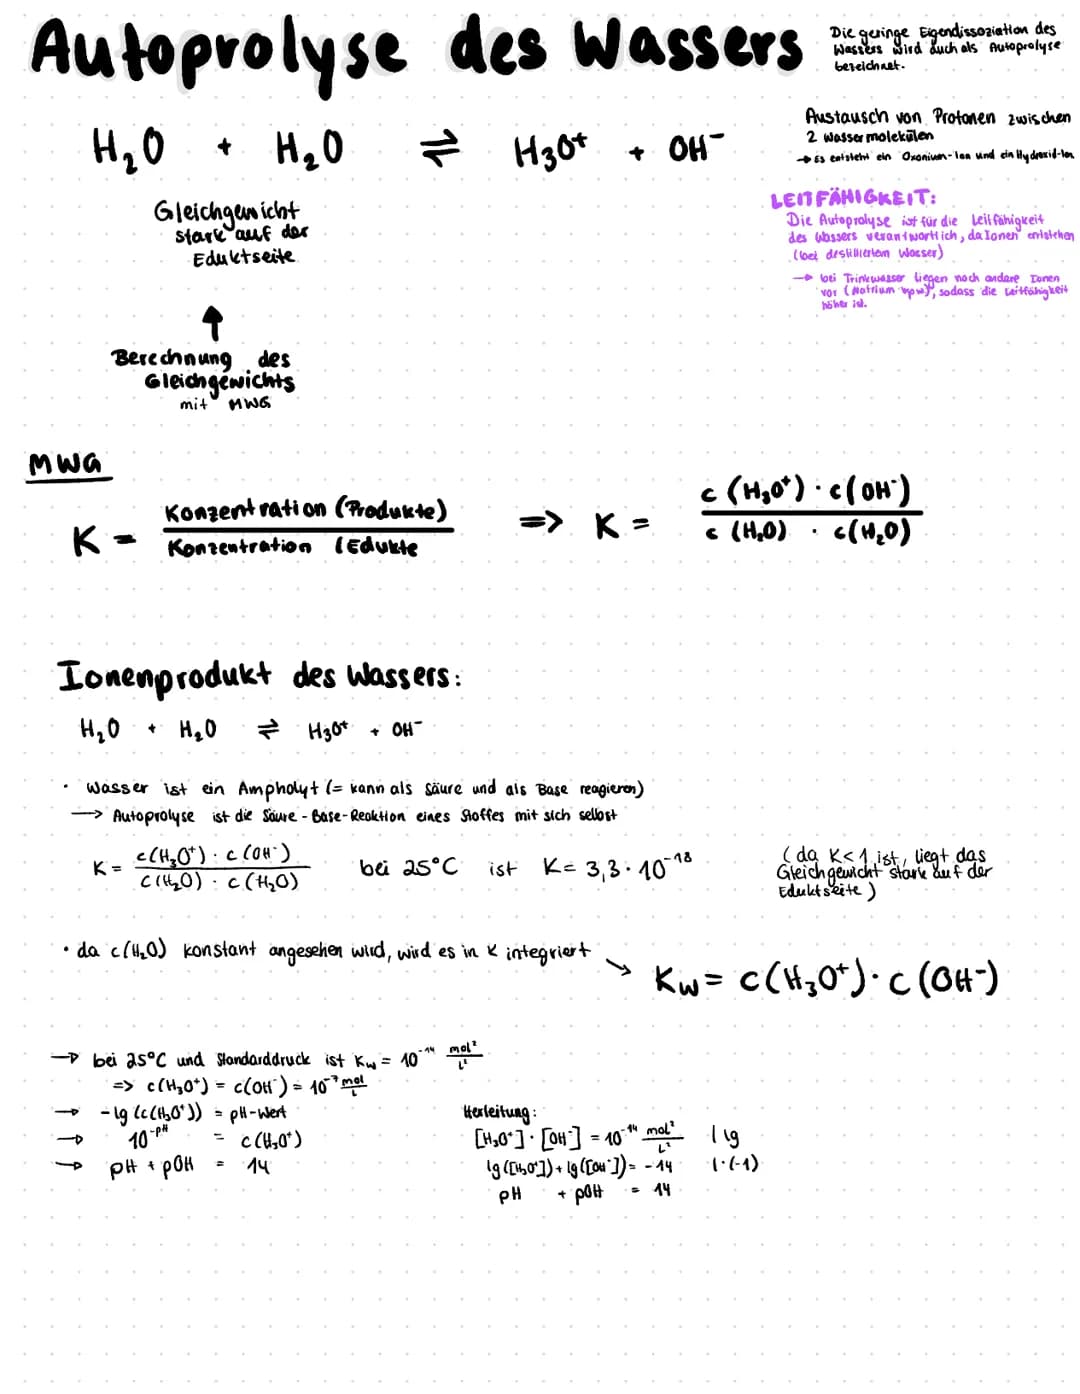 Autoprolyse des Wassers
Die geringe Eigendissoziation des
Wassers wird auch als Autoprolyse
bezeichnet.
H₂O + H₂O ⇌ H₃O⁺ + OH⁻
Austausch von Protonen zwischen
2 Wassermolekülen
→ Es entsteht ein Oxonium-Ion und ein Hydroxid-Ion
Gleichgewicht
stark auf der
Eduktseite
LEITFÄHIGKEIT:
Die Autoprolyse ist für die Leitfähigkeit
des Wassers verantwortlich, da Ionen entstehen
(bei destilliertem Wasser)
→ bei Trinkwasser liegen noch andere Ionen
vor (Natrium bpw), sodass die Leitfähigkeit
höher ist.
↑
Berechnung des
Gleichgewichts
mit MWG
MWG
K = Konzentration (Produkte) / Konzentration (Edukte => K = c(H₃O⁺) · c(OH⁻) / c(H₂O) · c(H₂O)
Ionenprodukt des Wassers:
H₂O + H₂O ⇌ H₃O⁺ + OH⁻
· Wasser ist ein Ampholyt (= kann als Säure und als Base reagieren)
→ Autoprolyse ist die Säure-Base-Reaktion eines Stoffes mit sich selbst
K = c(H₃O⁺) · c(OH⁻) / c(H₂O) · c(H₂O) bei 25°C ist K = 3,3 · 10⁻¹⁸
(da K<1 ist, liegt das
Gleichgewicht stark auf der
Eduktseite)
· da c(H₂O) konstant angesehen wird, wird es in K integriert
→ Kw = c(H₃O⁺) · c(OH⁻)
→ bei 25°C und Standarddruck ist Kw = 10⁻¹⁴ mol²/L²
=> c(H₃O⁺) = c(OH⁻) = 10⁻⁷ mol/L
→ -lg (c(H₃O⁺)) = pH-Wert
→ 10⁻ᵖᴴ = c(H₃O⁺)
→ pH + pOH = 14
Herleitung:
[H₃O⁺] · [OH⁻] = 10⁻¹⁴ mol²/L² | lg
lg([H₃O⁺]) + lg([OH⁻]) = -14 | ·(-1)
pH + pOH = 14